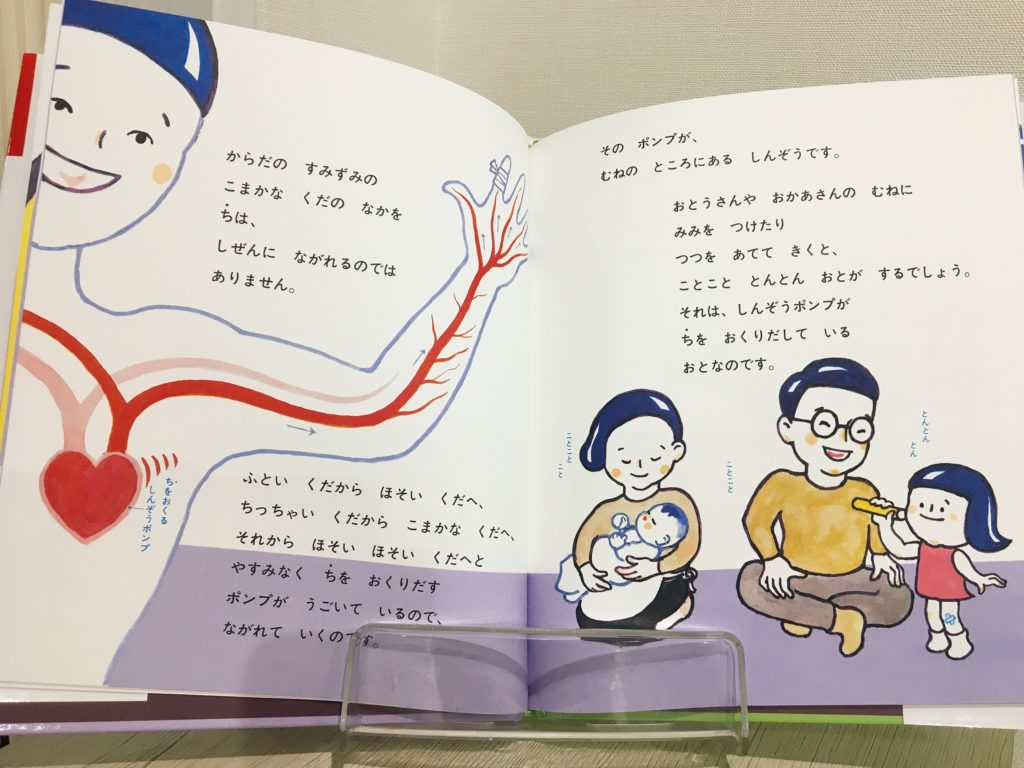 からだの　すみずみの
こまかな　くだの　なかを
ちは、
しぜんに　ながれるのでは
ありません。
ちをおくる
しんぞうポンプ
ふとい　くだから　ほそい　くだへ、
ちっちゃい　くだから　こまかな　くだへ、
それから　ほそい　ほそい　くだへと
やすみなく　ちを　おくりだす
ポンプが　うごいて　いるので、
ながれて　いくのです。
その　ポンプが、
むねの　ところにある　しんぞうです。
おとうさんや　おかあさんの　むねに
みみを　つけたり
つつを　あてて　きくと、
ことこと　とんとん　おとが　するでしょう。
それは、しんぞうポンプが
ちを　おくりだして　いる
おとなのです。
ことこと
こと
ことこと
とんとん
とん